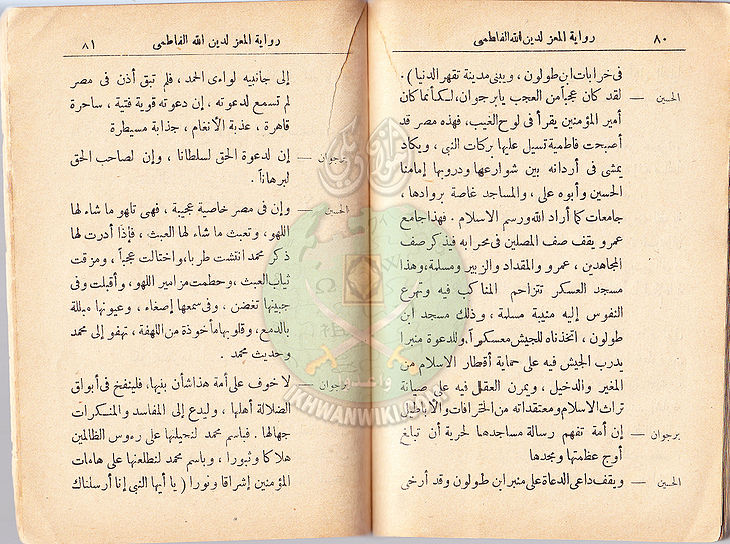 ٨٠
رواية المعز لدين الله الفاطمى
فى خرابات ابن طولون ، ويبنى مدينة تقهر الدنيا ) .
الحسين — لقد كان عجيباً من العجب يا برجوان، لكأنما كان
أمير المؤمنين يقرأ فى لوح الغيب، فهذه مصر قد
أصبحت فاطمية تسيل عليها بركات النبى ، ويكاد
يمشى فى أردانه بين شوارعها ودروبها إمامنا
الحسين وأبوه على ، والمساجد غاصة بروادها ،
جامعات كما أراد الله ورسم الاسلام . فهذا جامع
عمرو يقف صف المصلين فى محرابه فيذكر صف
المجاهدين ، عمرو والمقداد والزبير ومسلمة، وهذا
مسجد العسكر تتزاحم المناكب فيه وتهرع
النفوس إليه منيبة مسلمة ، وذلك مسجد ابن
طولون ، اتخذناه للجيش معسكراً، وللدعوة منبرا
يدرب الجيش فيه على حماية أقطار الاسلام من
المغير والدخيل ، ويمرن العقل فيه على صيانة
تراث الاسلام ومعتقداته من الخرافات والأباطيل
برجوان — إن أمة تفهم رسالة مساجدها لحرية أن تبلغ
أوج عظمتها ومجدها
الحسين — ويقف داعى الدعاة على منبر ابن طولون وقد أرخى
رواية المعز لدين الله الفاطمى
٨١
إلى جانبيه لواءى الحمد ، فلم تبق أذن فى مصر
لم تسمع لدعوته ، إن دعوته قوية فتية ، ساحرة
قاهرة ، عذبة الأنغام ، جذابة مسيطرة
برجوان — إن لدعوة الحق لسلطانا ، وإن لصاحب الحق
لبرهاناً .
الحسين — وإن فى مصر خاصية عجيبة ، فهى تلهو ما شاء لها
اللهو ، وتعبث ما شاء لها العبث ، فإذا أدرت لها
ذكر محمد انتشت طربا ، واختالت عجباً ، ومزقت
ثياب العبث ، وحطمت مزامير اللهو، وأقبلت وفى
جبينها تغضن ، وفى سمعها إصغاء ، وعيونها مبللة
بالدمع، وقلوبها مأخوذة من اللهفة ، تهفو إلى محمد
وحديث محمد .
برجوان — لا خوف على أمة هذا شأن بنيها، فلينفخ فى أبواق
الضلالة أهلها ، وليدع إلى المفاسد والمنكرات
جهالها . فباسم محمد لنحيلنها على رءوس الظالمين
هلاكا وثبورا ، وباسم محمد لنطلعنها على هامات
المؤمنين إشراقا ونورا ( يا أيها النبى إنا أرسلناك
واعدوا
IKHWANWIKI.COM